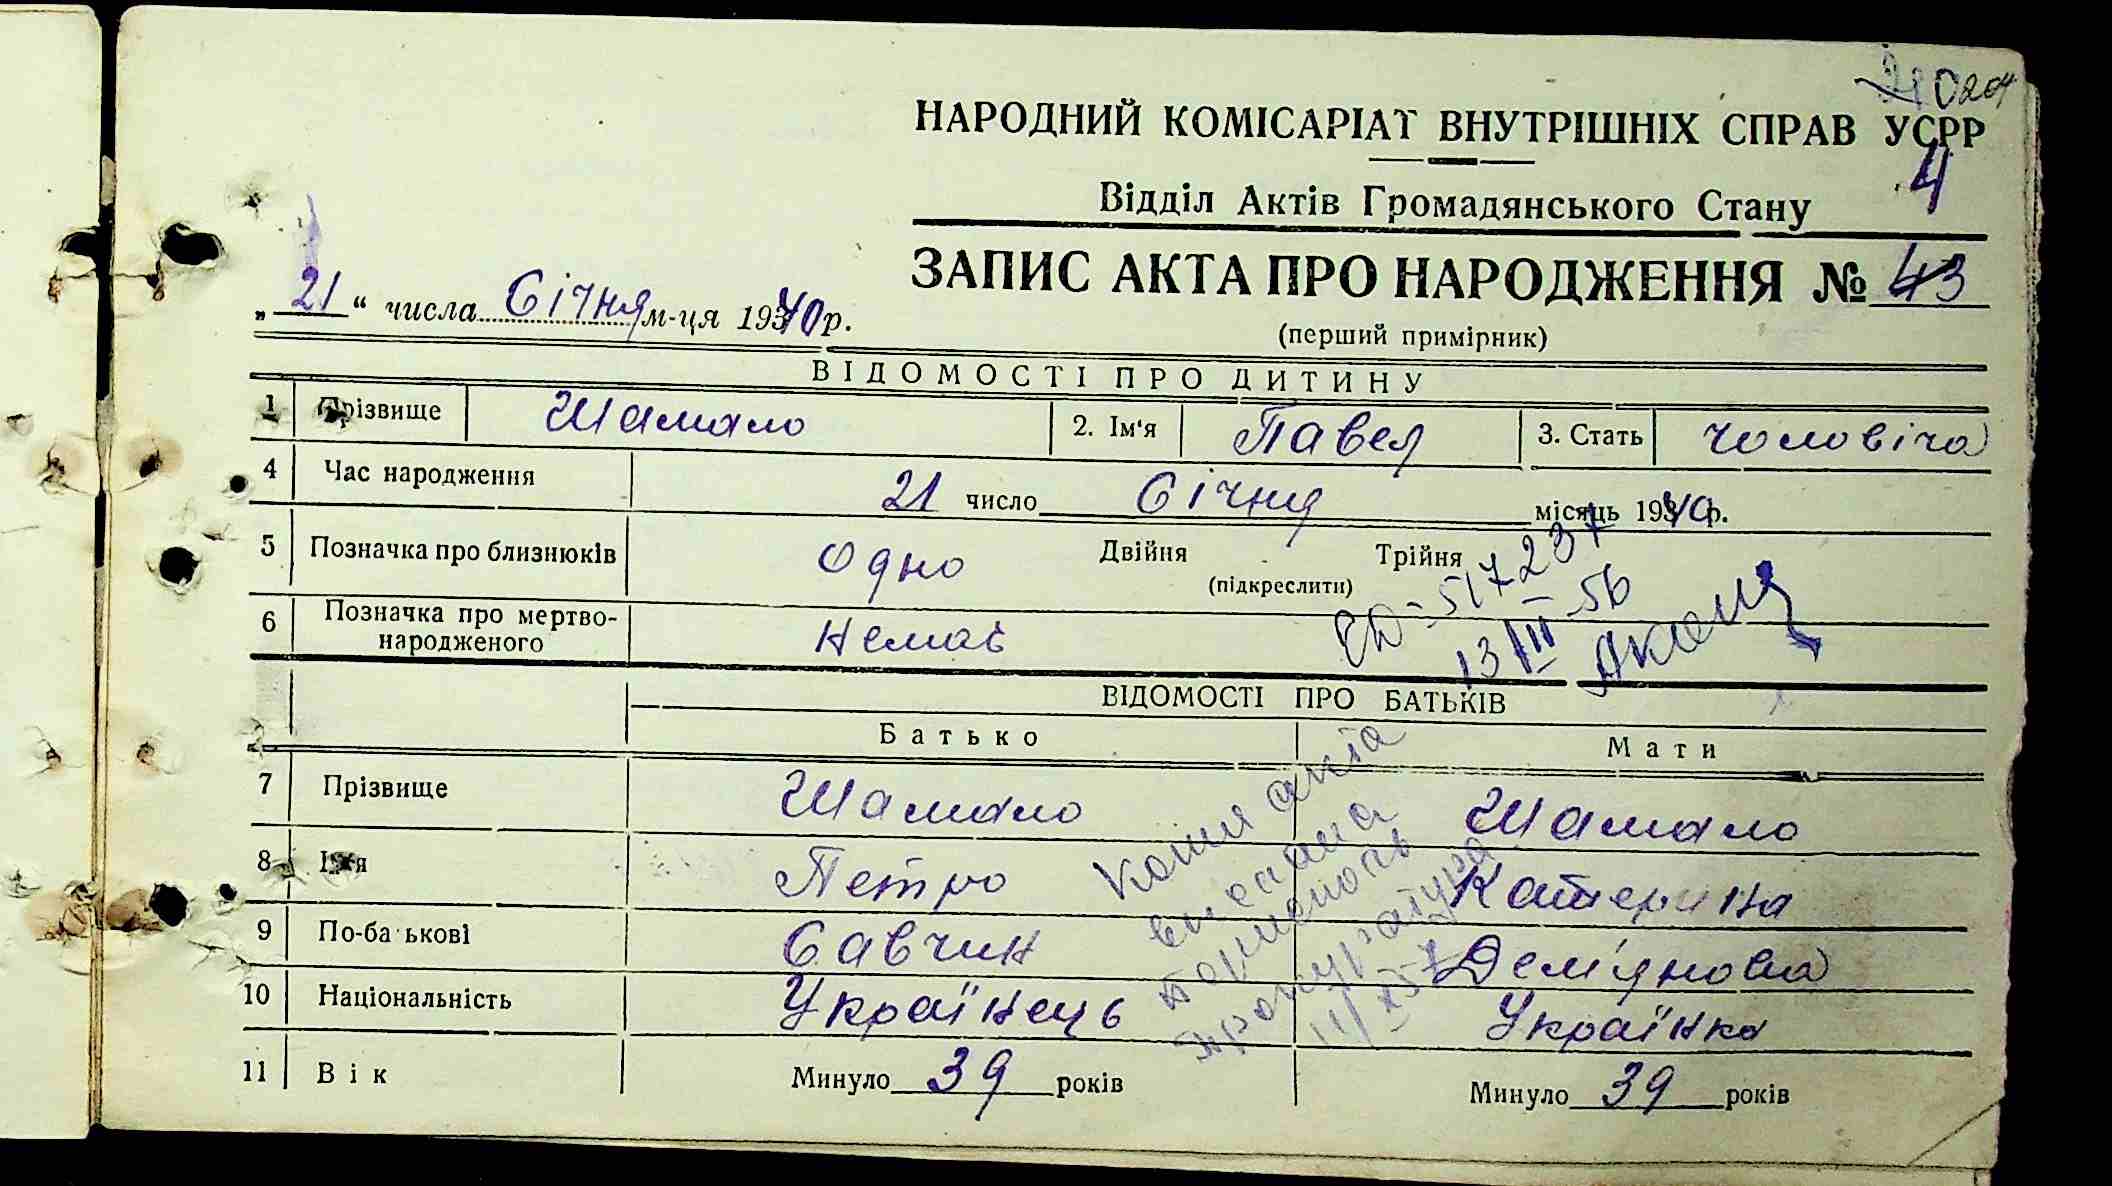 204
НАРОДНИЙ КОМІСАРІАТ ВНУТРІШНІХ СПРАВ УСРР
Відділ Актів Громадянського Стану
4
ЗАПИС АКТА ПРО НАРОДЖЕННЯ № 43
„21“ числа Січня м-ця 1940 р.
(перший примірник)
ВІДОМОСТІ ПРО ДИТИНУ
1 Прізвище Шамало 2. Ім'я Павел 3. Стать чоловіча
4 Час народження 21 число Січня місяць 1940 р.
5 Позначка про близнюків Одно Двійня Трійня
(підкреслити)
6 Позначка про мертво-
народженого Немає
517237
13/III-56
ВІДОМОСТІ ПРО БАТЬКІВ
Батько Мати
7 Прізвище Шамало Шамало
8 Ім'я Петро Катерина
9 По-батькові Савчин Дем'яновна
10 Національність Українець Українка
11 Вік Минуло 39 років Минуло 39 років
Копия акта
выслана